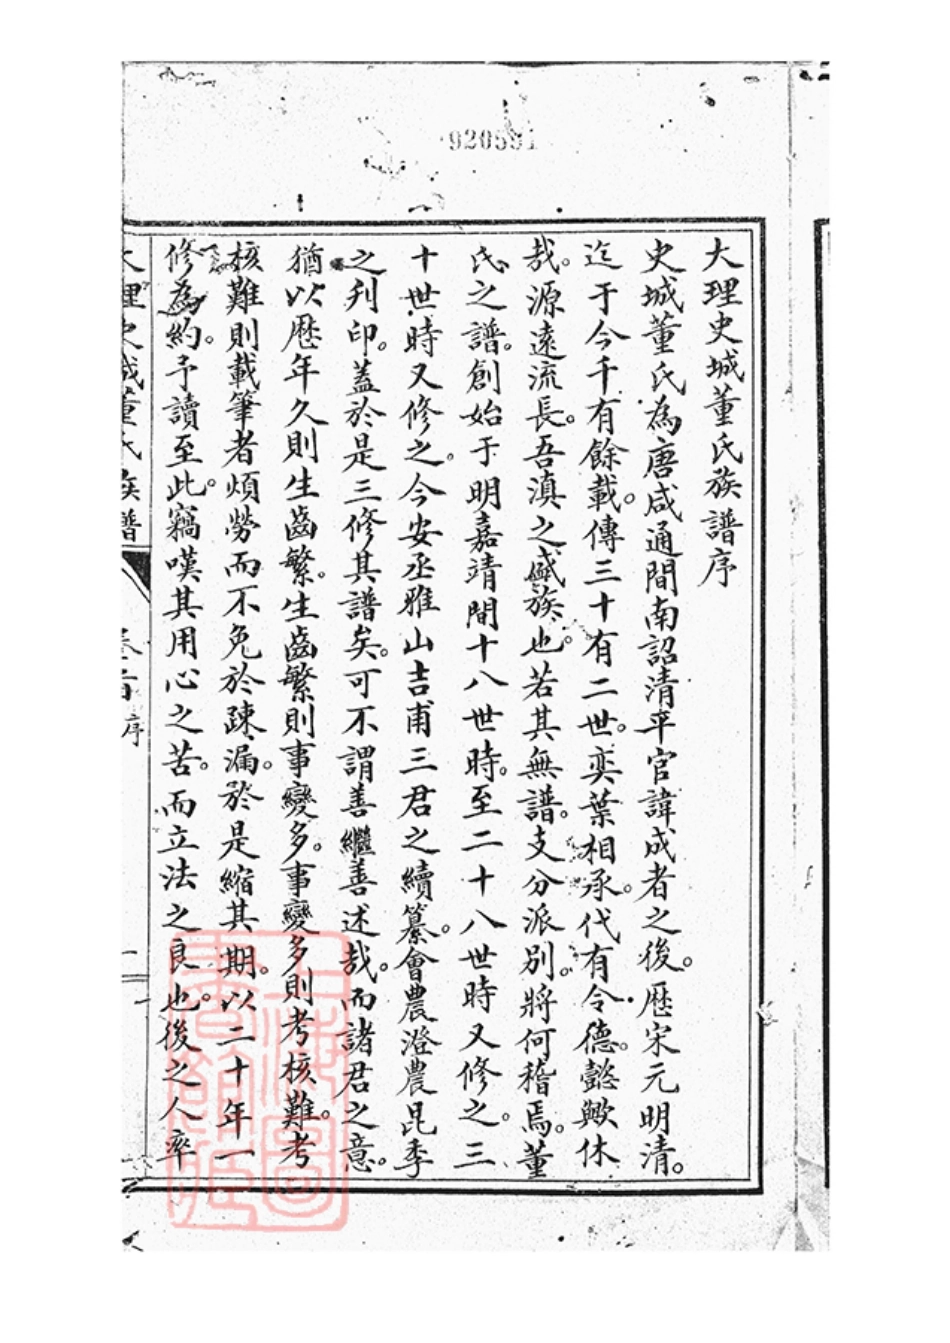 920551
大理史城董氏族譜序
史城董氏為唐咸通間南詔清平官諱成者之後。歷宋元明清。
迄于今千有餘載。傳三十有二世。奕葉相承。代有令德。懿歟休
哉。源遠流長。吾滇之盛族也。若其無譜。支分派別。將何稽焉。董
氏之譜。創始于明嘉靖間十八世時。至二十八世時又修之。三
十世時又修之。今安丞雅山吉甫三君之續纂。會農澄農昆季
之刋印。蓋於是三修其譜矣。可不謂善繼善述哉。而諸君之意。
猶以歷年久則生齒繁。生齒繁則事變多。事變多則考核難。考
核難則載筆者煩勞而不免於疎漏。於是縮其期。以二十年一
修為約。予讀至此。竊嘆其用心之苦。而立法之良也。後之人率
大理史城董氏族譜
卷首
序
一
上海圖書館藏